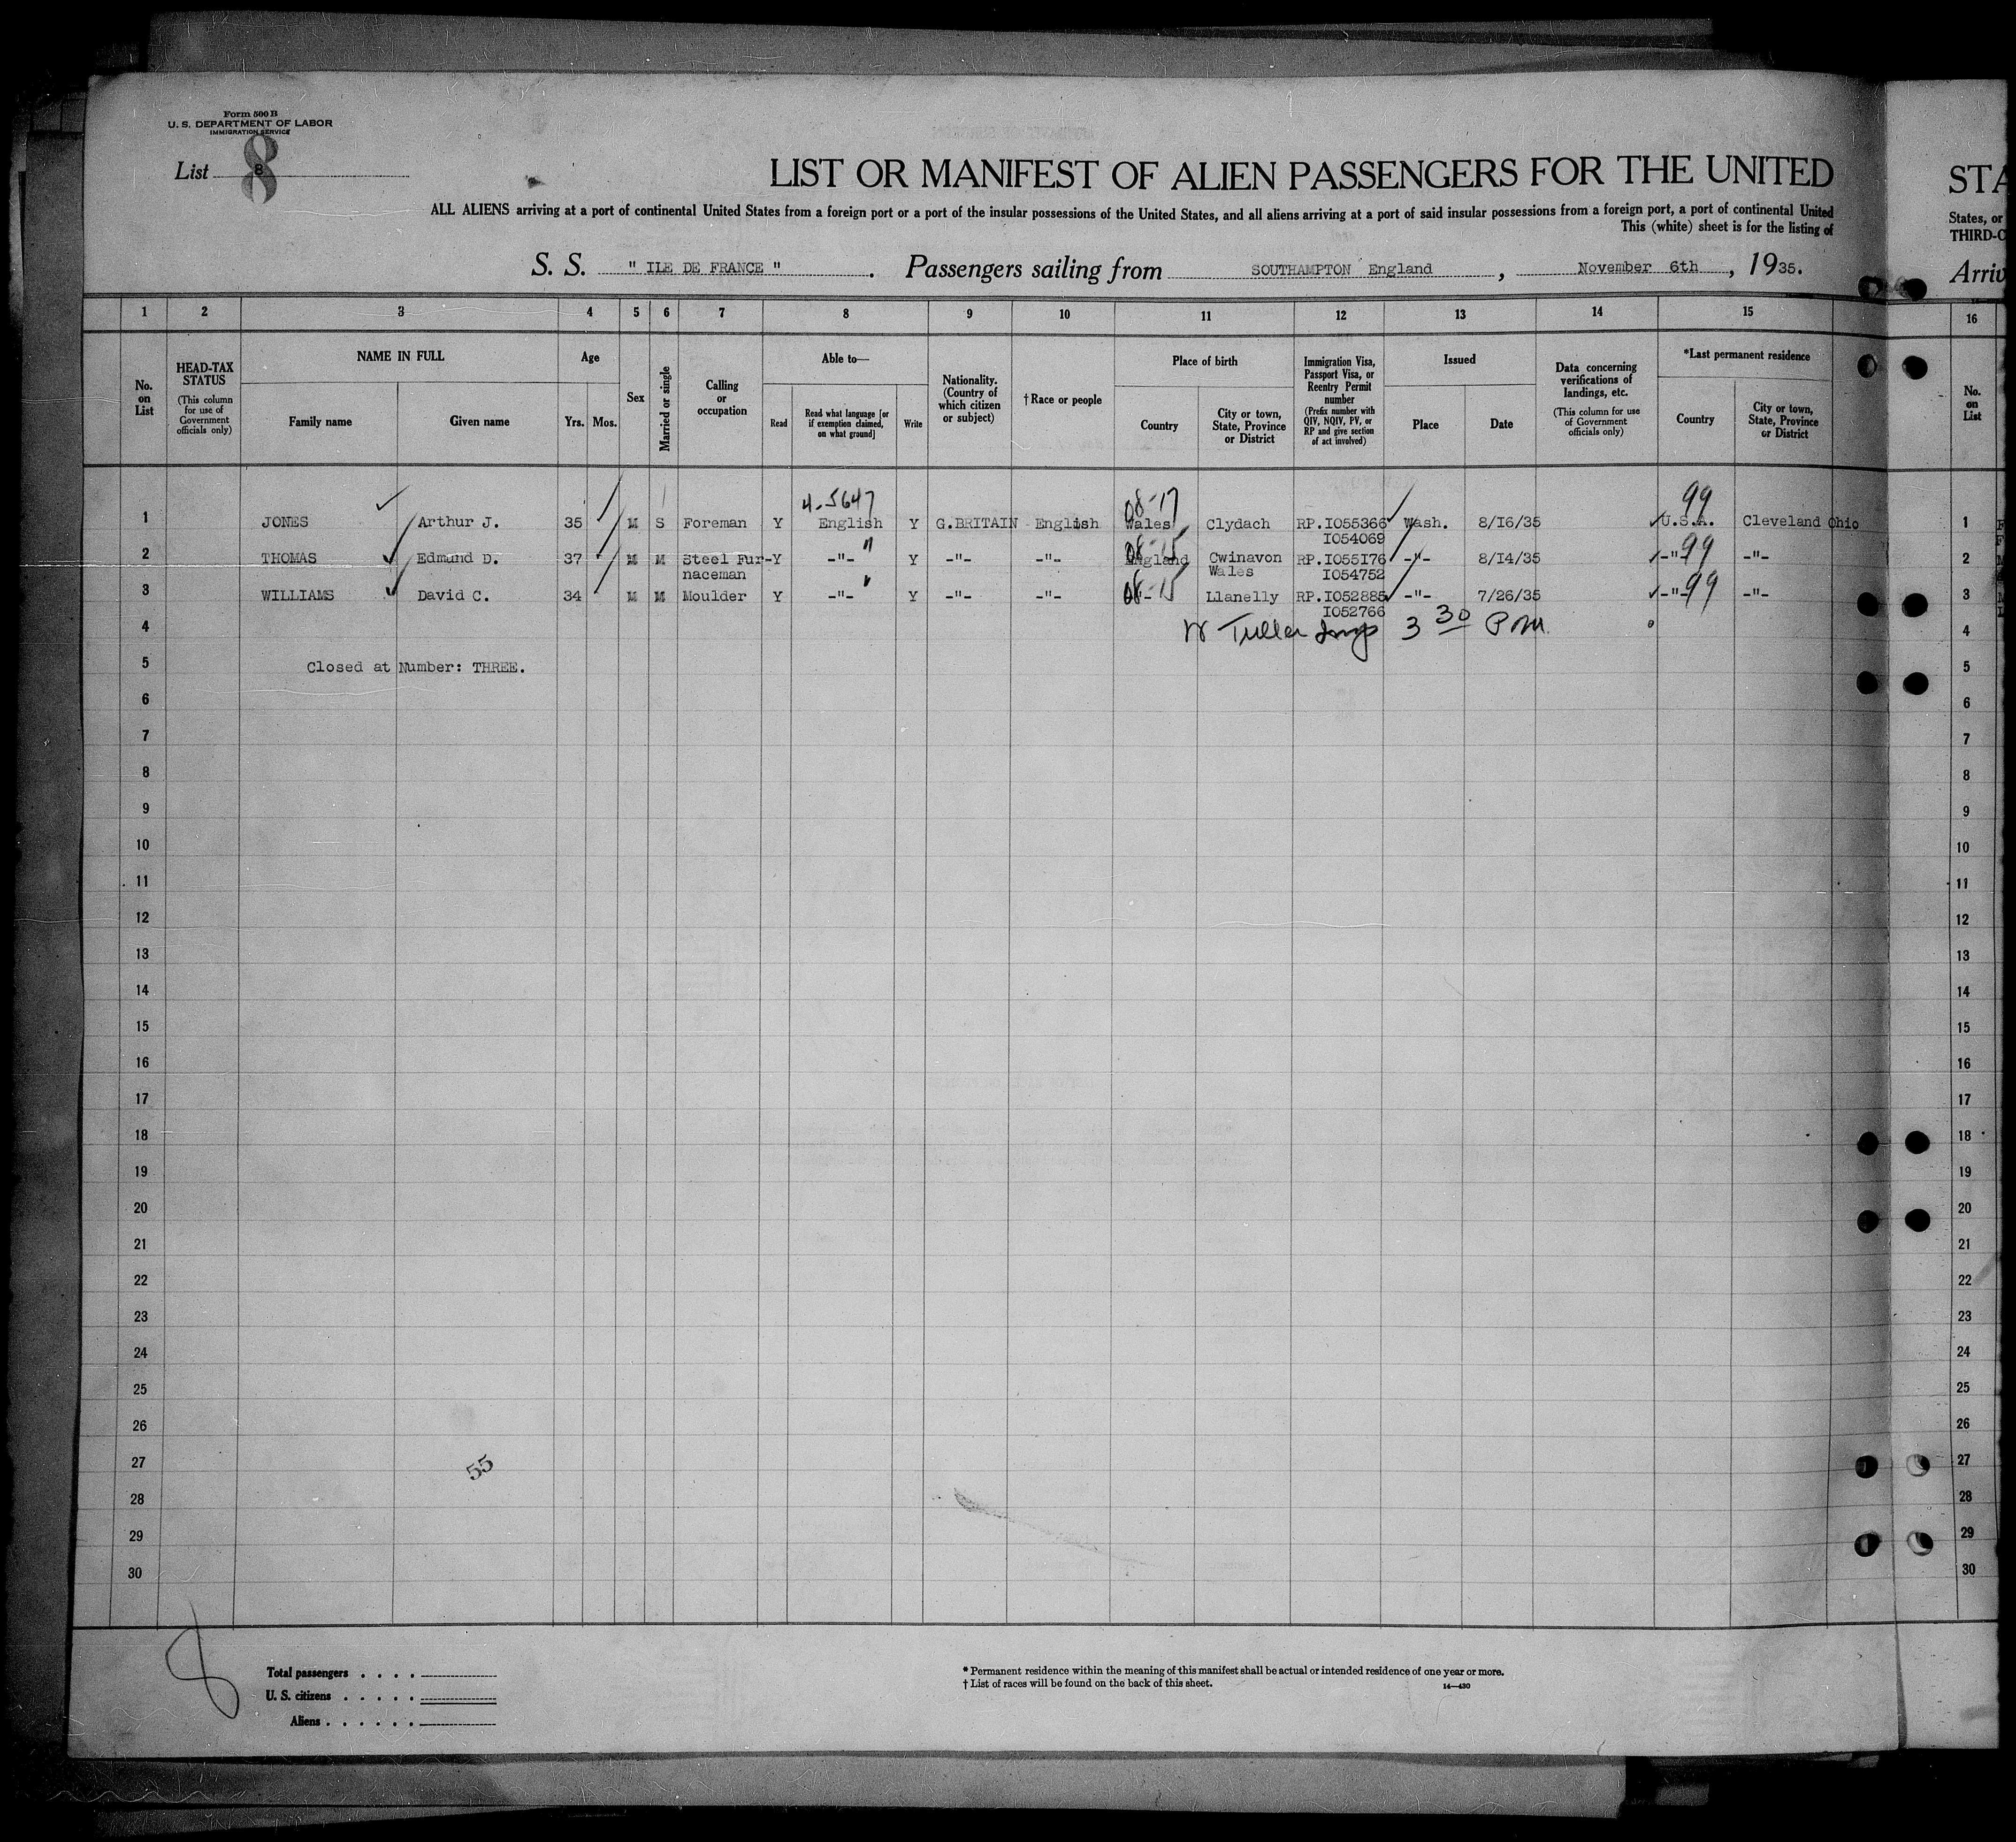 Form 500 B
U. S. DEPARTMENT OF LABOR
IMMIGRATION SERVICE
List 8
8
LIST OR MANIFEST OF ALIEN PASSENGERS FOR THE UNITED
STA
ALL ALIENS arriving at a port of continental United States from a foreign port or a port of the insular possessions of the United States, and all aliens arriving at a port of said insular possessions from a foreign port, a port of continental United
States, or
This (white) sheet is for the listing of
THIRD-C
S. S. " ILE DE FRANCE " . Passengers sailing from SOUTHAMPTON England , November 6th , 1935.
Arriv
1 2 3 4 5 6 7 8 9 10 11 12 13 14 15 16
No. on List
HEAD-TAX STATUS
(This column for use of Government officials only)
NAME IN FULL
Family name
Given name
Age
Yrs. Mos.
Sex
Married or single
Calling or occupation
Able to—
Read
Read what language [or if exemption claimed, on what ground]
Write
Nationality. (Country of which citizen or subject)
† Race or people
Place of birth
Country
City or town, State, Province or District
Immigration Visa, Passport Visa, or Reentry Permit number
(Prefix number with QIV, NQIV, PV, or RP and give section of act involved)
Issued
Place
Date
Data concerning verifications of landings, etc.
(This column for use of Government officials only)
*Last permanent residence
Country
City or town, State, Province or District
No. on List
4-5647 08-17 99
1 JONES Arthur J. 35 M S Foreman Y English Y G.BRITAIN English Wales Clydach RP.I055366 Wash. 8/I6/35 U.S.A. Cleveland Ohio 1
I054069
08-15 99
2 THOMAS Edmund D. 37 M M Steel Fur- Y -"- " Y -"- -"- England Cwinavon RP.I055I76 -"- 8/I4/35 -"- -"- 2
naceman Wales I054752
3 WILLIAMS David C. 34 M M Moulder Y -"- " Y -"- -"- 08-15 Llanelly RP.I052885 -"- 7/26/35 -"- 99 -"- 3
I052766
4 3 30 PM 4
5 Closed at Number: THREE. 5
6 6
7 7
8 8
9 9
10 10
11 11
12 12
13 13
14 14
15 15
16 16
17 17
18 18
19 19
20 20
21 21
22 22
23 23
24 24
25 25
26 26
27 27
55
28 28
29 29
30 30
8
Total passengers . . . .
U. S. citizens . . . . .
Aliens . . . . . .
* Permanent residence within the meaning of this manifest shall be actual or intended residence of one year or more.
† List of races will be found on the back of this sheet.
14—430